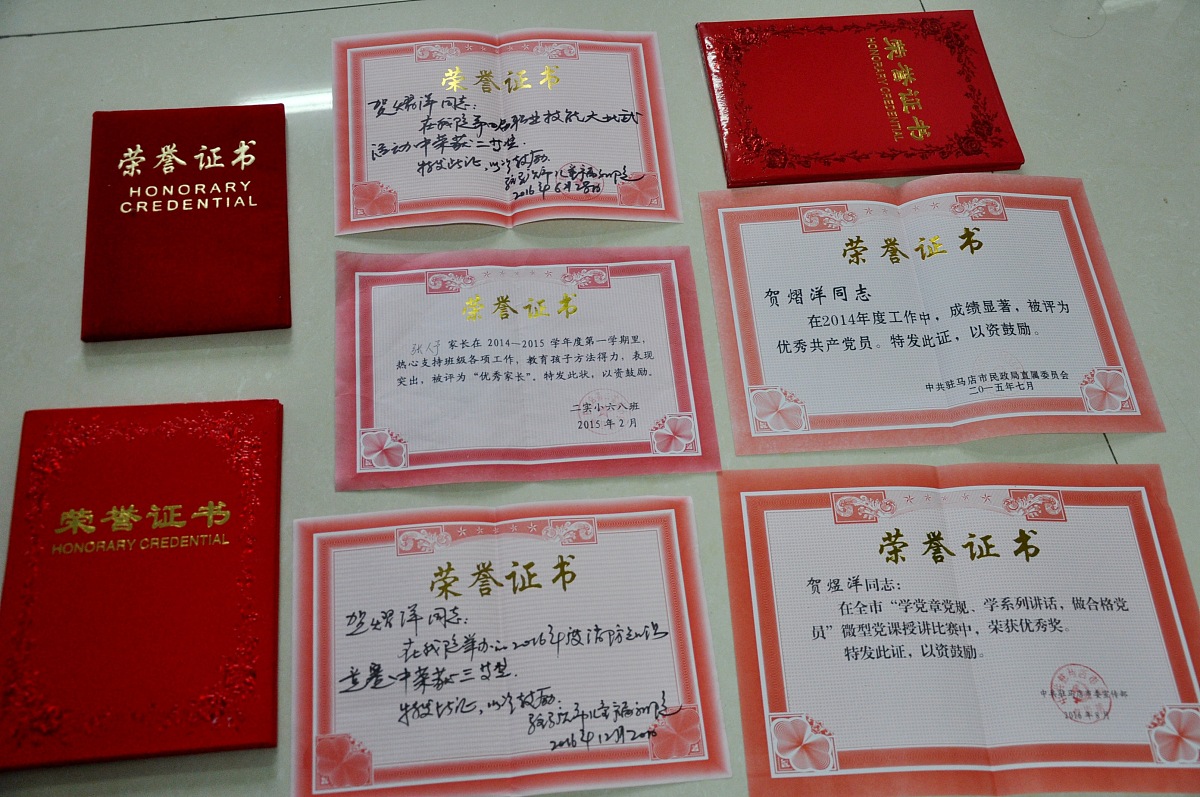 荣誉证书
HONORARY
CREDENTIAL
荣誉证书
HONORARY CREDENTIAL
荣誉证书
贺熠洋同志:
在我院第四届职业技能大比武
活动中荣获二等奖.
特发此证,以资鼓励.
2016年6月28日
荣誉证书
家长在 2014~2015 学年度第一学期里,
热心支持班级各项工作,教育孩子方法得力,表现
突出,被评为“优秀家长”。特发此状,以资鼓励。
二实小六八班
2015 年 2 月
荣誉证书
贺熠洋同志:
在我院举办的2016年度消防知识
竞赛中荣获三等奖.
特发此证,以资鼓励.
2016年12月20日
荣誉证书
HONORARY CREDENTIAL
荣誉证书
贺熠洋同志
在2014年度工作中,成绩显著,被评为
优秀共产党员。特发此证,以资鼓励。
中共驻马店市民政局直属委员会
二〇一五年七月
荣誉证书
贺煜洋同志:
在全市“学党章党规、学系列讲话,做合格党
员”微型党课授讲比赛中,荣获优秀奖。
特发此证,以资鼓励。
中共驻马店市委宣传部